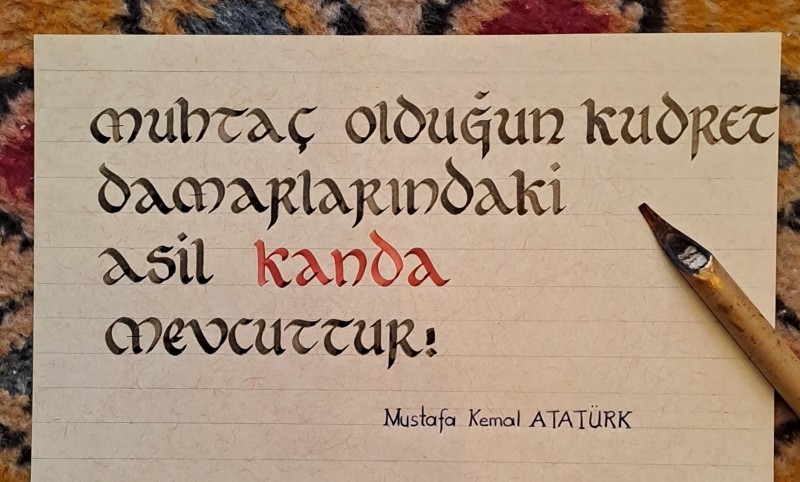 muhtaç olduğun kudret
damarlarındaki
asil kanda
mevcuttur!
Mustafa Kemal ATATÜRK